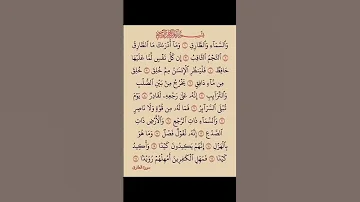 بسم الله الرحمن الرحيم
وَالسَّمَاءِ وَالطَّارِقِ ۝ وَمَا أَدْرَاكَ مَا الطَّارِقُ
۝ النَّجْمُ الثَّاقِبُ ۝ إِن كُلُّ نَفْسٍ لَّمَّا عَلَيْهَا
حَافِظٌ ۝ فَلْيَنظُرِ الْإِنسَانُ مِمَّ خُلِقَ ۝ خُلِقَ
مِن مَّاءٍ دَافِقٍ ۝ يَخْرُجُ مِن بَيْنِ الصُّلْبِ
وَالتَّرَائِبِ ۝ إِنَّهُ عَلَىٰ رَجْعِهِ لَقَادِرٌ ۝ يَوْمَ
تُبْلَى السَّرَائِرُ ۝ فَمَا لَهُ مِن قُوَّةٍ وَلَا نَاصِرٍ
۝ وَالسَّمَاءِ ذَاتِ الرَّجْعِ ۝ وَالْأَرْضِ ذَاتِ
الصَّدْعِ ۝ إِنَّهُ لَقَوْلٌ فَصْلٌ ۝ وَمَا هُوَ
بِالْهَزْلِ ۝ إِنَّهُمْ يَكِيدُونَ كَيْدًا ۝ وَأَكِيدُ
كَيْدًا ۝ فَمَهِّلِ الْكَافِرِينَ أَمْهِلْهُمْ رُوَيْدًا ۝
سورة الطارق